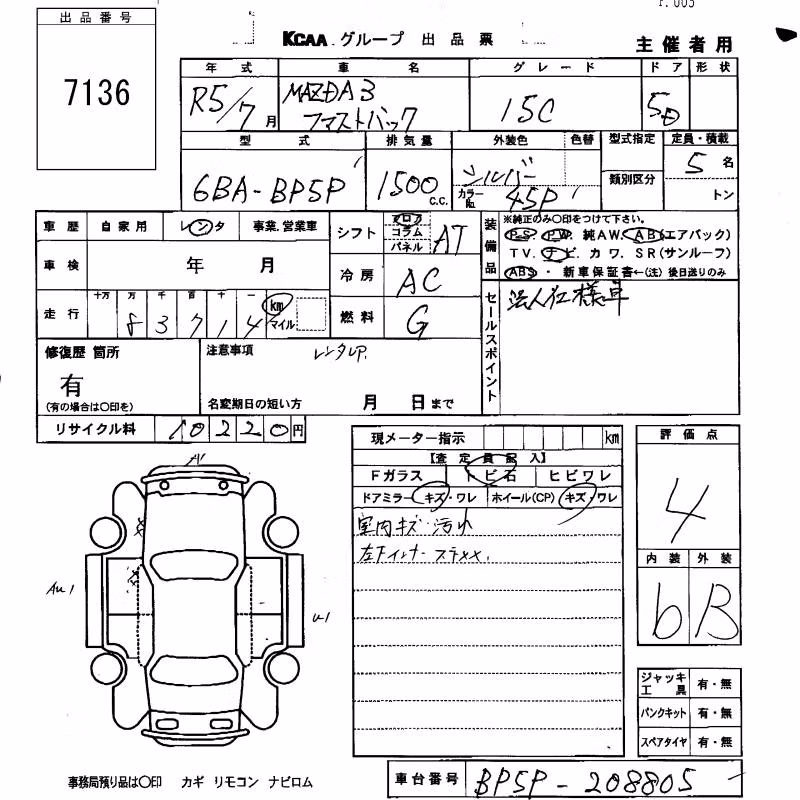 出品番号
7136
KCAA グループ 出品票
主催者用
年式 車名 グレード ドア 形状
R5/7月 MAZDA3 ファストバック 15C 5D
型式 排気量 外装色 色替 型式指定 定員・積載
6BA-BP5P 1500 C.C. シルバー 5名
カラーNo. 45P 類別区分 トン
車歴 自家用 レンタ 事業.営業車
シフト フロア コラム パネル AT
装備品 ※純正のみ〇印をつけて下さい。
P.S P.W. 純A.W. A.B(エアバッグ)
T.V. ナビ. カワ. S.R(サンルーフ)
ABS・ 新車保証書←(注)後日送りのみ
車検 年 月
冷房 AC
走行 十万 万 千 百 十 一 km マイル
83714
燃料 G
セールスポイント
法人仕様車
修復歴 箇所
有
(有の場合は〇印を)
注意事項 レンタUP.
名変期日の短い方 月 日まで
リサイクル料 10220円
現メーター指示 km
【査定員記入】
Fガラス トビ石 ヒビワレ
ドアミラー キズ・ワレ ホイール(CP) キズ・ワレ
室内キズ・汚れ
評価点
4
内装 外装
b B
A1
U1
ジャッキ工具 有・無
パンクキット 有・無
スペアタイヤ 有・無
事務局預り品は〇印 カギ リモコン ナビロム
車台番号 BP5P-208805